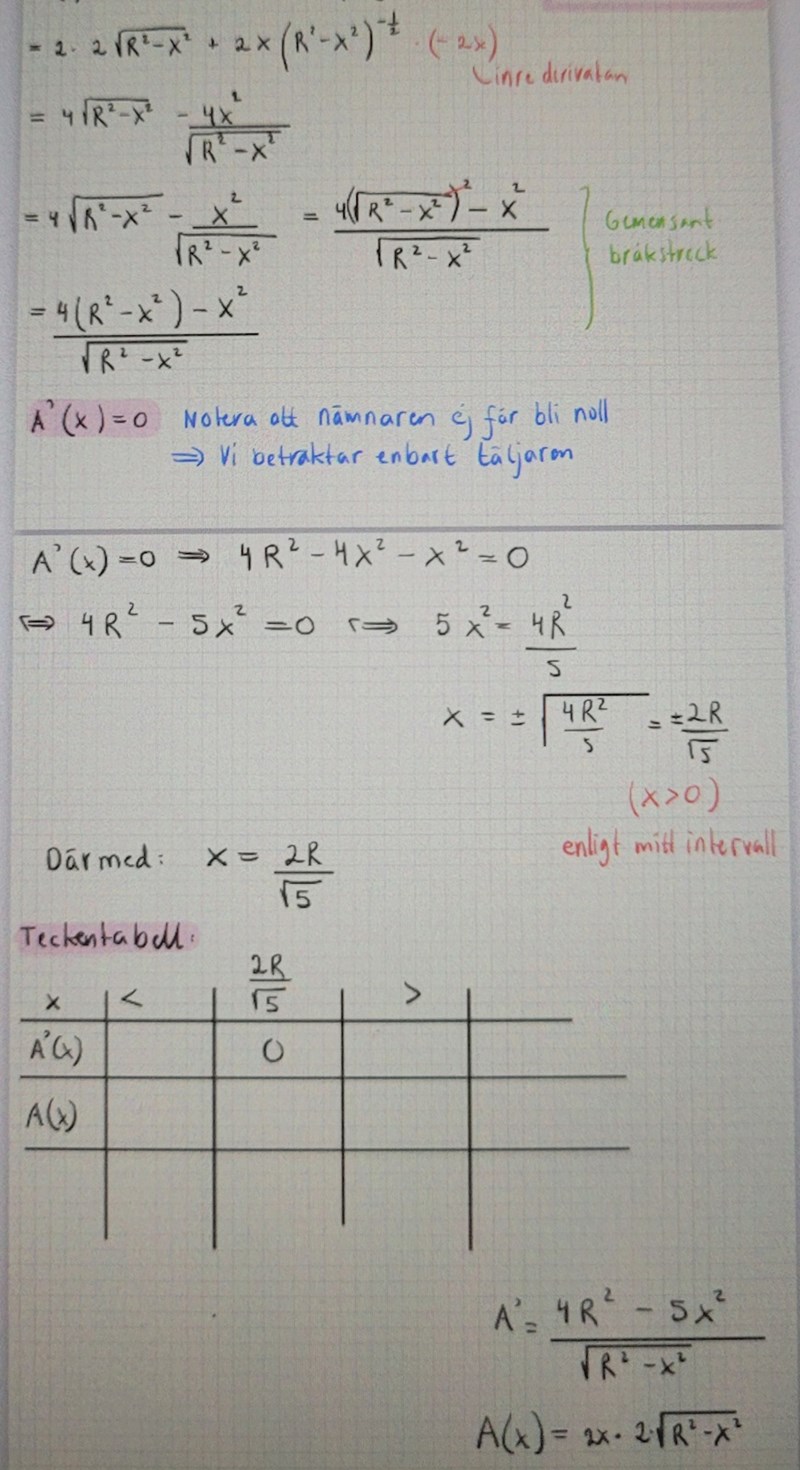 = 2 · 2√(R²-x²) + 2x(R²-x²)^(-1/2) · (-2x)
inre dirivatan
= 4√(R²-x²) - 4x²/√(R²-x²)
= 4√(R²-x²) - x²/√(R²-x²) = (4(√(R²-x²))² - x²)/√(R²-x²)
Gemensamt
bråkstreck
= (4(R²-x²) - x²)/√(R²-x²)
A'(x)=0 Notera att nämnaren ej får bli noll
⇒ Vi betraktar enbart täljaren
A'(x)=0 ⇒ 4R² - 4x² - x² = 0
⇔ 4R² - 5x² = 0 ⇔ 5x² = 4R²/5
x = ±√(4R²/5) = ±2R/√5
(x>0)
enligt mitt intervall
Därmed: x = 2R/√5
Teckentabell:
x < 2R/√5 >
A'(x) 0
A(x)
A' = (4R² - 5x²)/√(R²-x²)
A(x) = 2x · 2√(R²-x²)